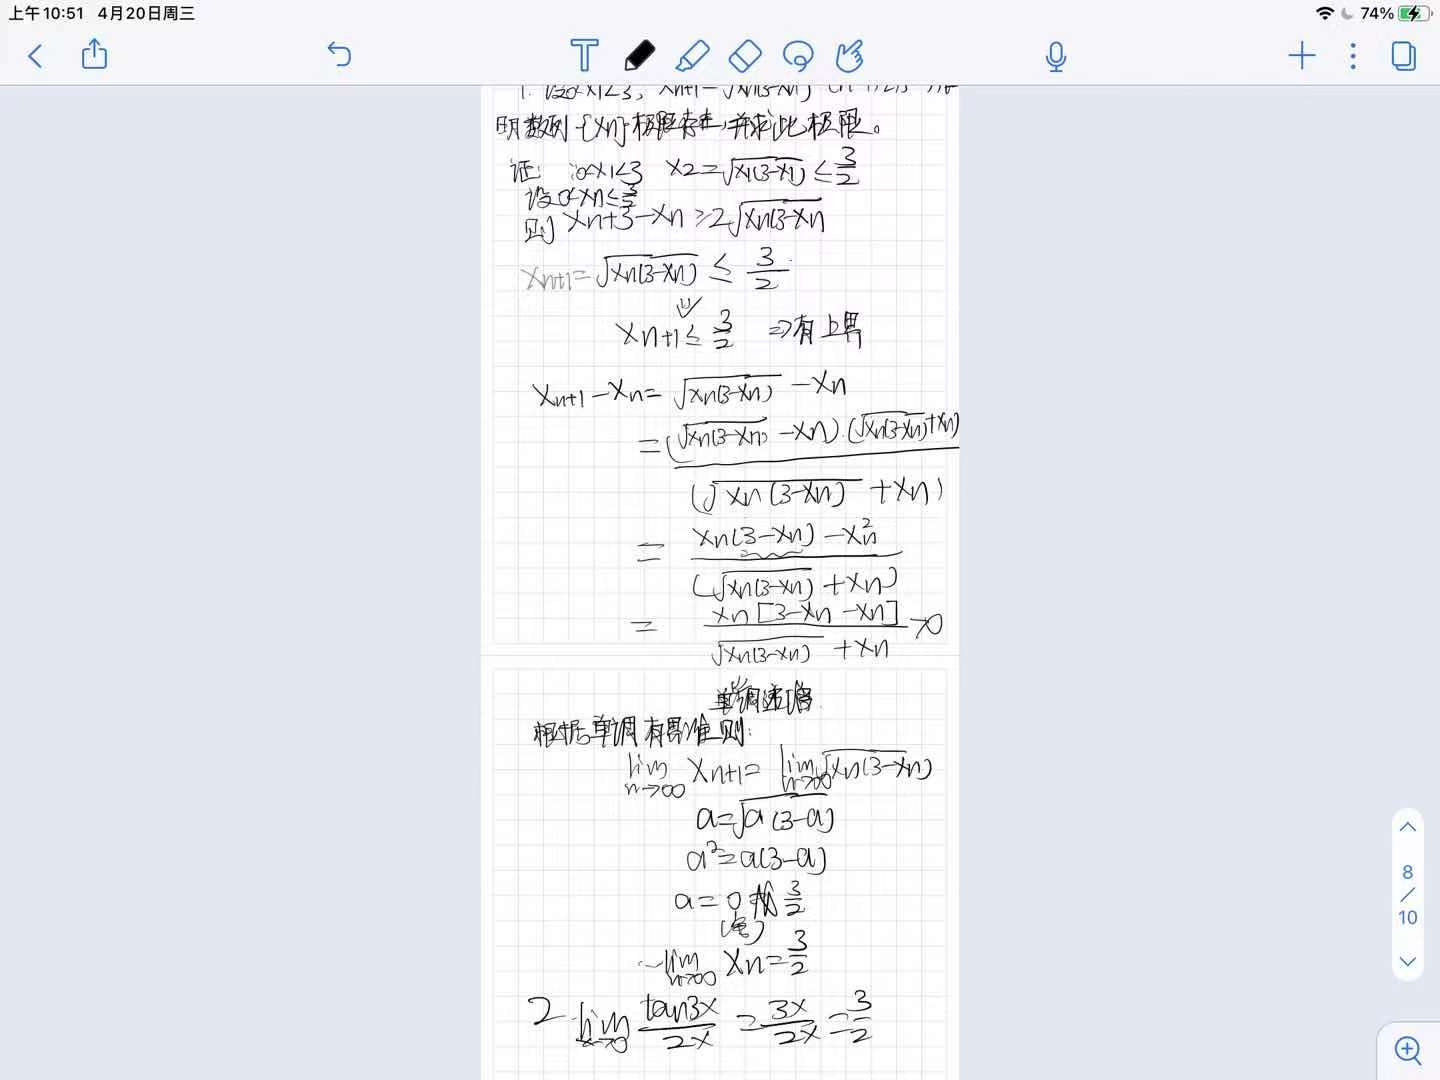 上午10:51 4月20日周三
74%
1. 设0<x1<3, xn+1=√xn(3-xn)
明数列{xn}极限存在,并求此极限。
证: ∵0<x1<3 x2=√x1(3-x1) ≤ 3/2
设0<xn≤3/2
则 xn+3-xn ≥2√xn(3-xn
xn+1=√xn(3-xn) ≤ 3/2
⇓
xn+1≤ 3/2 ⇒有上界
xn+1-xn= √xn(3-xn) -xn
= (√xn(3-xn) -xn)·(√xn(3-xn)+xn) / (√xn(3-xn) +xn)
= xn(3-xn)-xn² / (√xn(3-xn) +xn)
= xn[3-xn-xn] / √xn(3-xn) +xn >0
单调递增
根据单调有界准则:
lim n→∞ xn+1= lim n→∞ √xn(3-xn)
a=√a(3-a)
a²=a(3-a)
a=0 3/2
(舍)
∴lim n→∞ xn=3/2
2 lim x→0 tan3x/2x = 3x/2x = 3/2
8
/
10